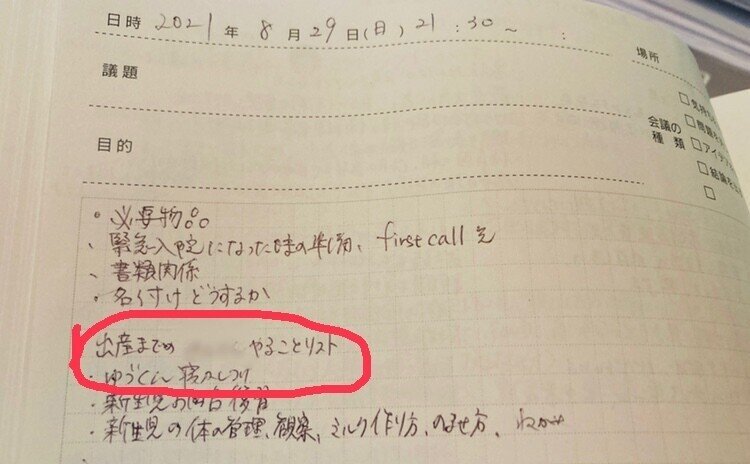 日時 2021 年 8 月 29 日(日) 21 : 30 ~ :
場所
議題
会議の種類
□気持ち
□問題を
□アイデア
□結論を
□
目的
・必要物品
・緊急入院になった時の準備、first call 先
・書類関係
・名付けどうするか
出産までの やることリスト
・ゆうくん寝かしつけ
・新生児お世話復習
・新生児の体の管理、観察、ミルク作り方、のませ方、ねかせ